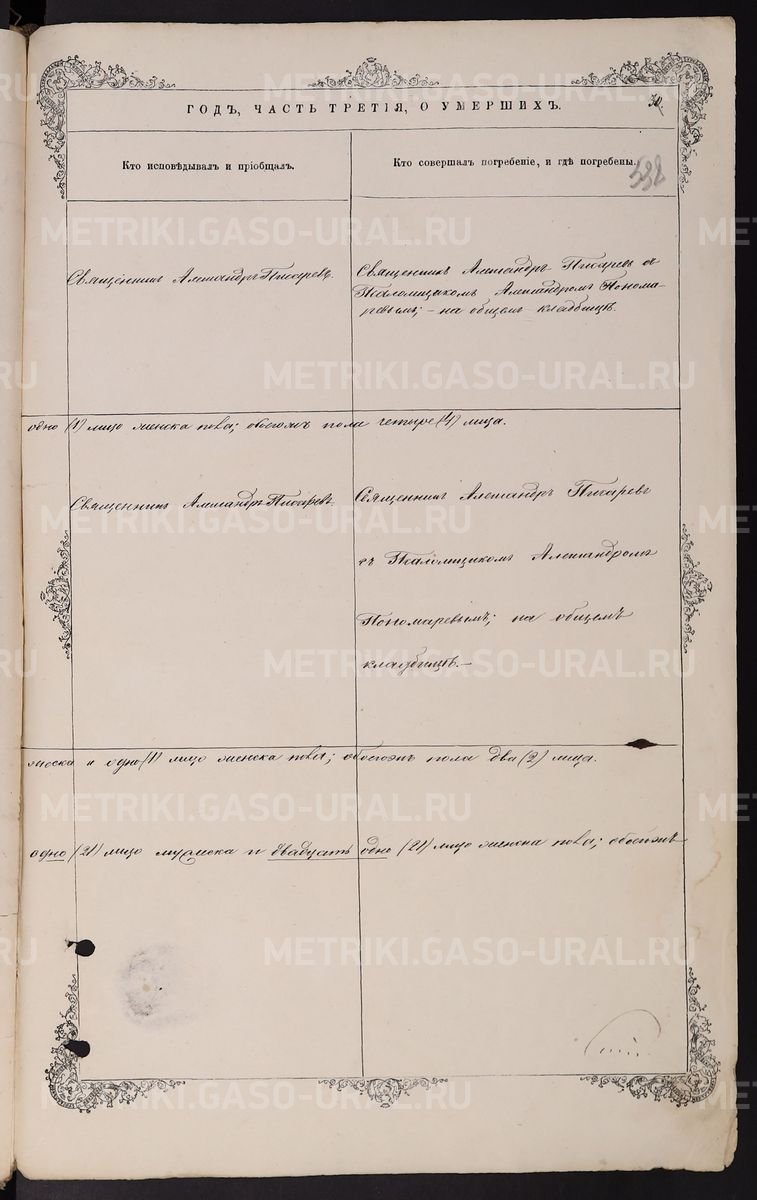 ГОДЪ, ЧАСТЬ ТРЕТІЯ, О УМЕРШИХЪ.
Кто исповѣдывалъ и пріобщалъ.
Кто совершалъ погребеніе, и гдѣ погребены.
Священникъ Александръ Писаревъ.
Священникъ Александръ Писаревъ съ
Псаломщикомъ Александромъ Понома-
ревымъ; – на общемъ кладбищѣ.
одно (1) лицо женска пола; обоего пола четыре (4) лица.
Священникъ Александръ Писаревъ
Священникъ Александръ Писаревъ
съ Псаломщикомъ Александромъ
Пономаревымъ; на общемъ
кладбищѣ. –
и одно (1) лицо женска пола; обоего пола два (2) лица.
одно (21) лицо мужеска и двадцать одно (21) лицо женска пола; обоего
METRIKI.GASO-URAL.RU